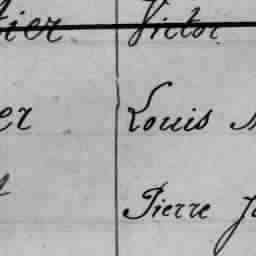 tier Victor
er Louis
Pierre